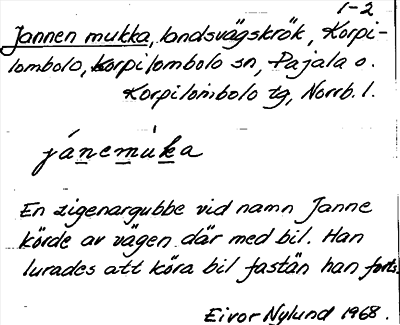 1-2
Jannen mukka, landsvägskrök, Korpi-
lombolo, Korpilombolo sn, Pajala o.
Korpilombolo tg, Norrb. l.
jánemùka
En zigenargubbe vid namn Janne
körde av vägen där med bil. Han
lurades att köra bil fastän han forts.
Eivor Nylund 1968.